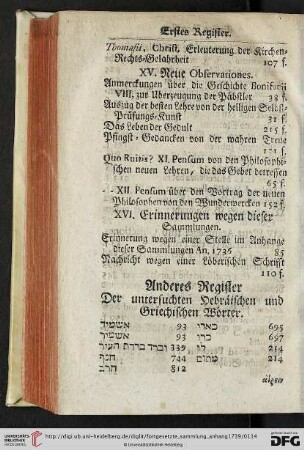 Erstes Register.
Thomasii, Christ. Erleuterung der Kirchen-
Rechts-Gelahrheit 107 f.
XV. Neue Observationes.
Anmerckungen über die Geschichte Bonifacii
VIII. zur Uberzeugung der Päbstler 38 f.
Auszug der besten Lehre von der heiligen Selbst-
Prüfungs-Kunst 31 f.
Das Leben der Gedult 215 f.
Pfingst-Gedancken von der wahren Treue
Quo Ruitis? XI. Pensum von den Philosophi-
schen neuen Lehren, die das Gebet betreffen
65 f.
- - XII. Pensum über den Vortrag der neuen
Philosophen von den Wunderwercken 152 f.
XVI. Erinnerungen wegen dieser
Sammlungen.
Erinnerung wegen einer Stelle im Anhange
dieser Sammlungen An. 1736 85
Nachricht wegen einer Löberischen Schrifft
110 f.
Anderes Register
Der untersuchten Hebräischen und
Griechischen Wörter.
אשמיד 93 כארו 695
אשמיך 93 כרו 697
וברד ברדת היער 339 לו 214
חנף 744 מקום 214
חרב 812
http://digi.ub.uni-heidelberg.de/diglit/fortgesetzte_sammlung_anhang1739/0134
© Universitätsbibliothek Heidelberg
gefördert durch die
DFG